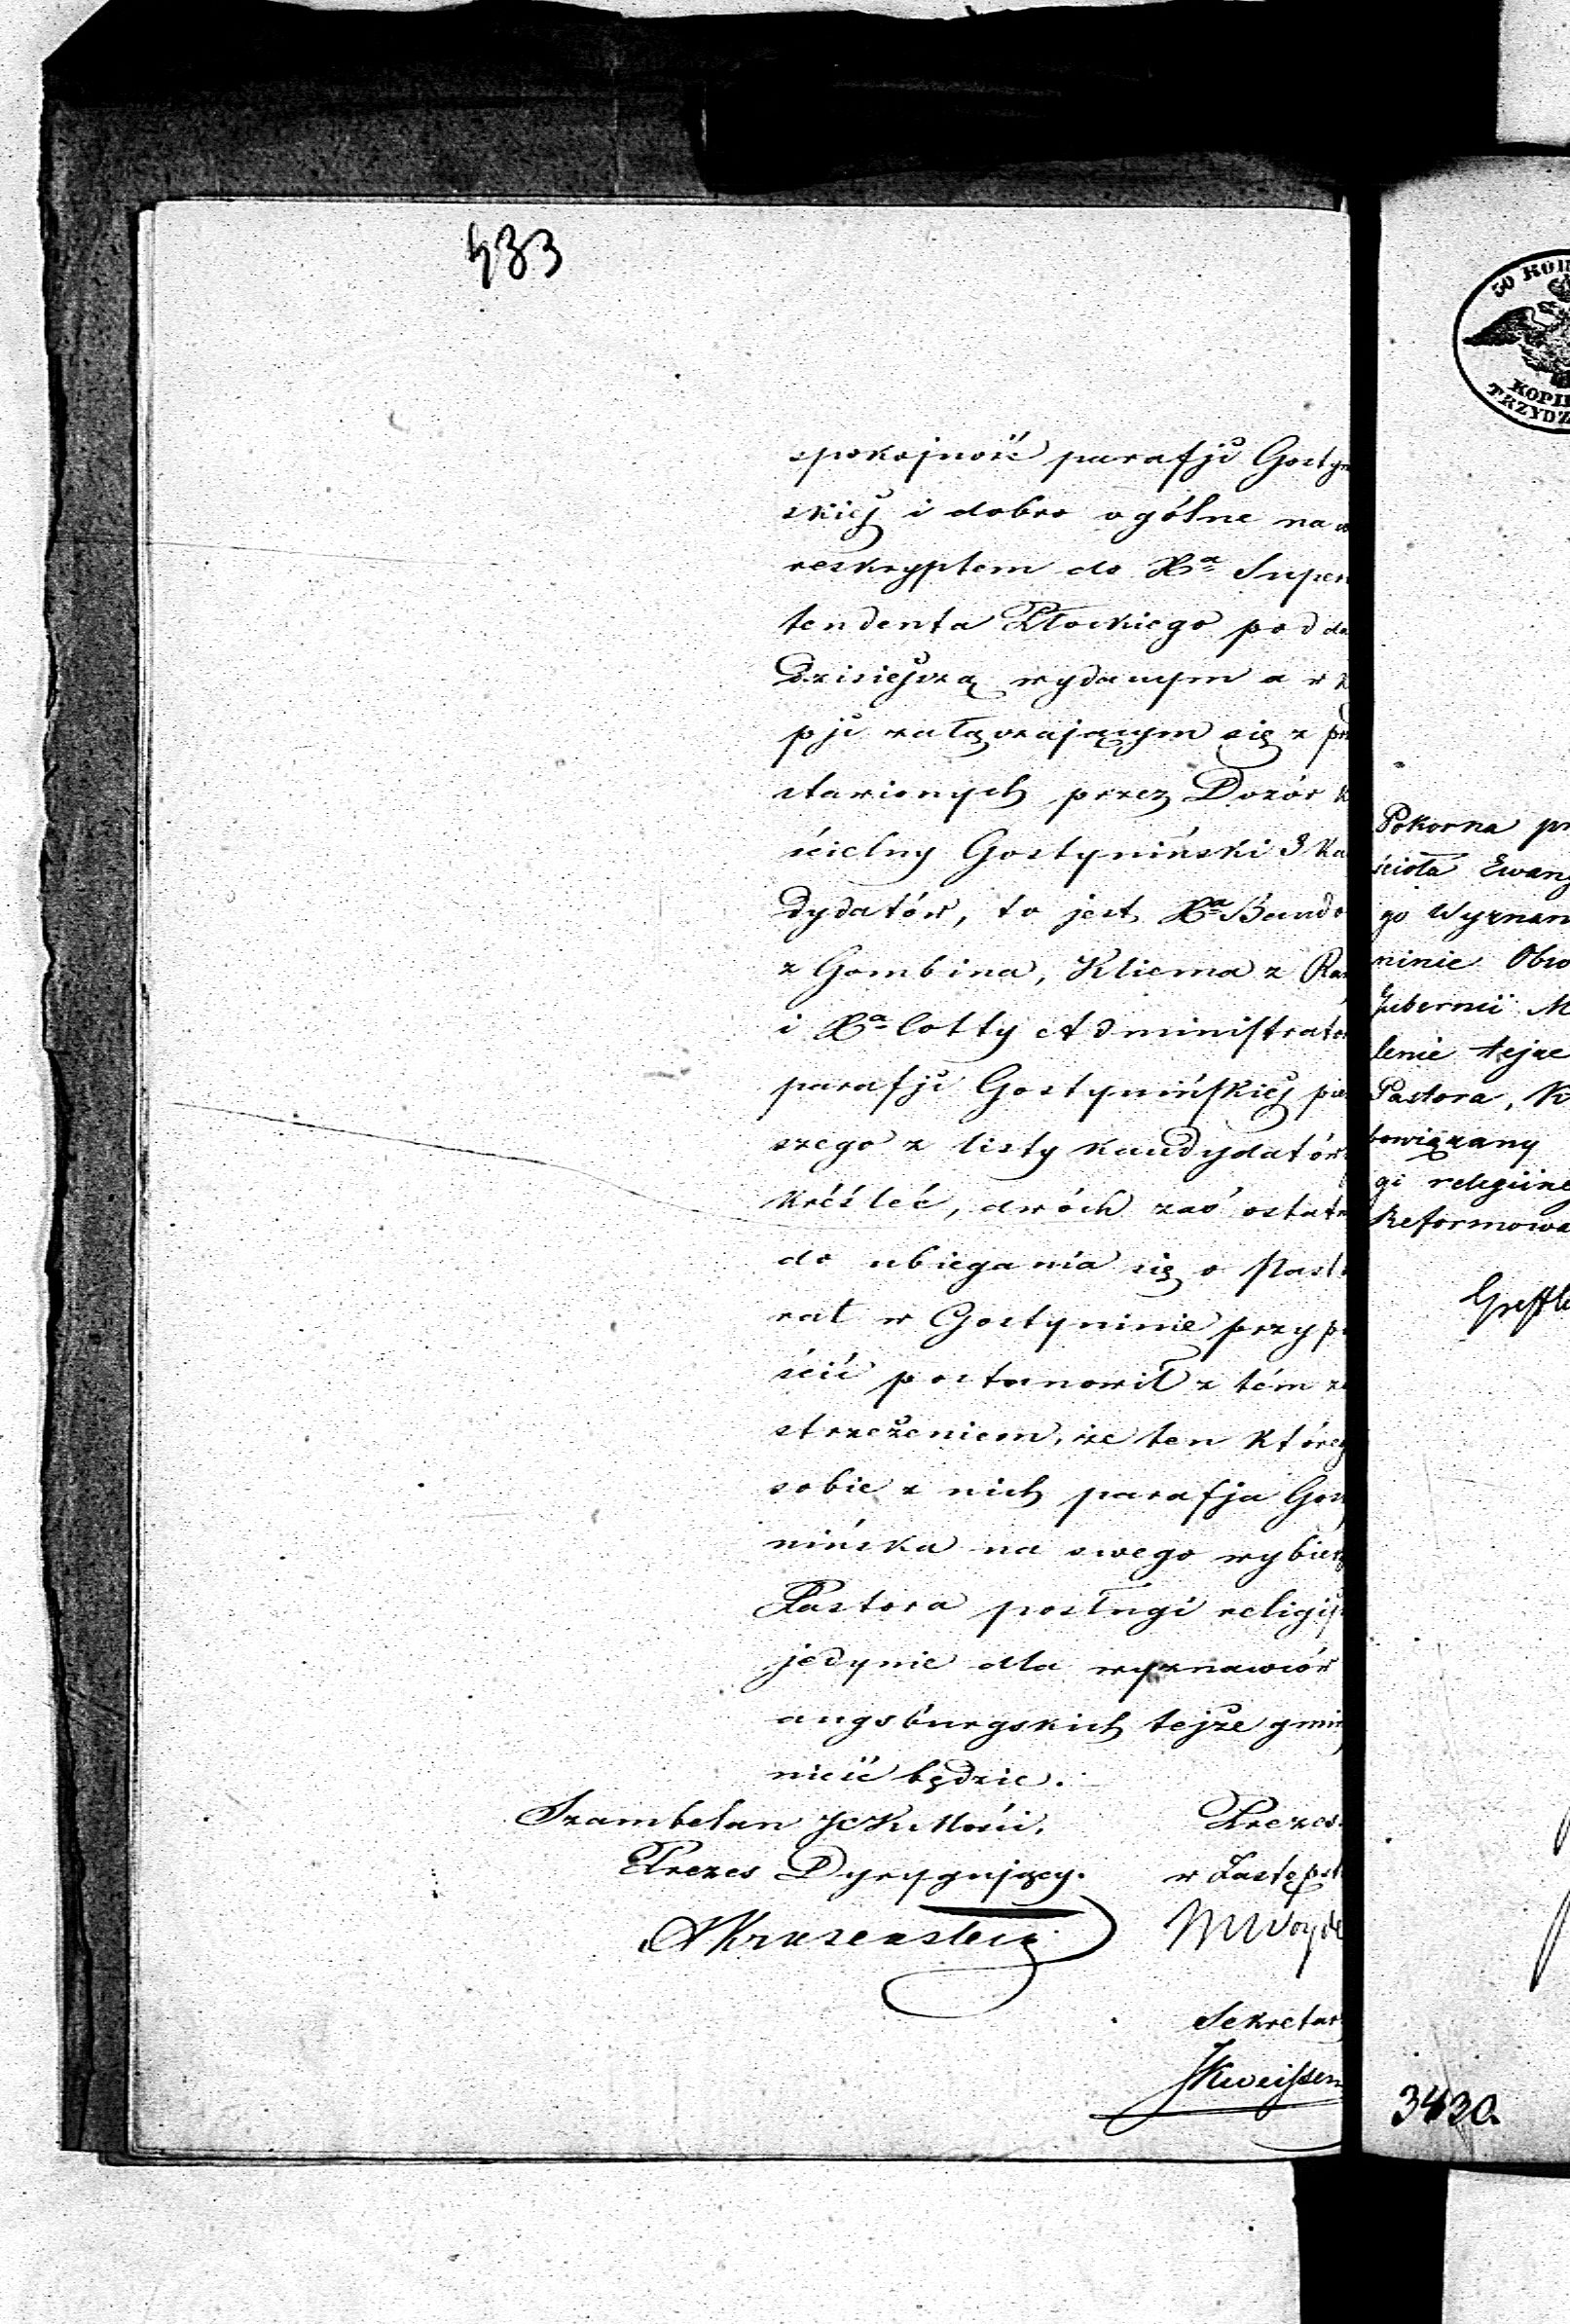 433
spokojność parafji Gostyn
skiej i dobro ogólne na
reskryptem do Xa Super
tendenta Płockiego pod da
dzisiejszą wydanym a w
pji załączającym się z prz
stawionych przez Dozór K
ścielny Gostyniński 3 Ka
dydatów, to jest Xa Bando
z Gombina, Kliema z
i Xa Cotty Administrator
parafji Gostynińskiej
szego z listy kandydatów
kréśleć, dwóch zaś ostatn
do ubiegania się o Pasto
rat w Gostyninie przypu
ścić postanowił z tém za
strzeżeniem, że ten któreg
sobie z nich parafja Gos
nińska na swego wybierz
Pastora posługi religij
jedynie dla wyznawców
augsburgskich tejże gmin
nieść będzie.
Szambelan JCK Mości. Prezes
Prezes Dyrygujący. w Zastępst
AKruzenstern
Sekretar
50 KOP
KOPIE
TRZYDZ
Pokorna pr
ścioła Ewang
go Wyznan
ninie Obw
Gubernii M
lenie tejże
Pastora, K
bowiązany
gi religijne
Reformowa
3430.